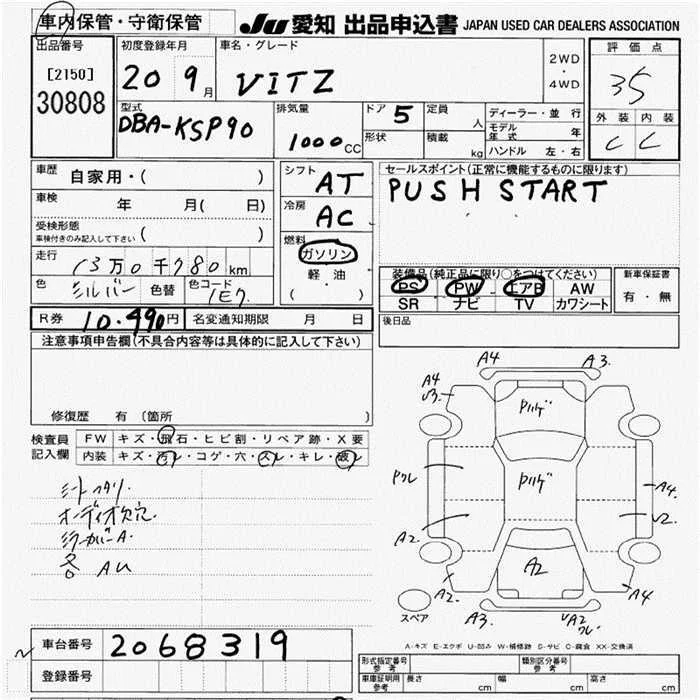 車内保管・守衛保管
JU 愛知 出品申込書 JAPAN USED CAR DEALERS ASSOCIATION
出品番号
[2150]
30808
初度登録年月
20 9月
車名・グレード
VITZ
2WD
・
4WD
評価点
35
外装 内装
C C
型式
DBA-KSP90
排気量
1000cc
ドア 5
形状
定員 人
積載 kg
ディーラー・並行
モデル年式 年
ハンドル 左・右
車歴 自家用・( )
車検 年 月( 日)
受検形態
車検付きのみ記入して下さい ( )
走行 13万0千780km
色 シルバー 色替 色コード 1E7
シフト AT
冷房 AC
燃料
ガソリン
軽油
( )
セールスポイント(正常に機能するものに限ります)
PUSH START
装備品(純正品に限り○をつけてください)
PS PW エアB AW
SR ナビ TV カワシート
新車保証書
有・無
R券 10.490円 名変通知期限 月 日
後日品
注意事項申告欄(不具合内容等は具体的に記入して下さい)
修復歴 有(箇所 )
検査員
記入欄
FW キズ・飛石・ヒビ割・リペア跡・X要
内装 キズ・汚レ・コゲ・穴・スレ・キレ・破レ
オーディオ欠品.
ミラーカバーA.
各 AU
A4 A3.
A4
U3.
Pハゲ
Pハゲ
Pクレ
A4.
U2.
A2.
A2
A2.
A4
A3.
UA2
クレ
スペア
A-キズ E-エクボ U-凹み W-補修跡 S-サビ C-腐食 XX-交換済
車台番号 2068319
登録番号
形式指定番号
参考
類別区分番号
参考
車庫証明用
参考
長さ cm 幅 cm 高さ cm